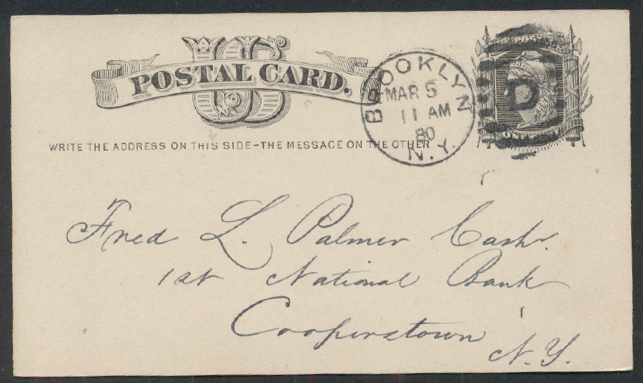 US
POSTAL CARD.
WRITE THE ADDRESS ON THIS SIDE-THE MESSAGE ON THE OTHER
BROOKLYN
MAR 5
11 AM
80
N.Y.
D
Fred L. Palmer Cashr.
1st National Bank
Cooperstown
N.Y.